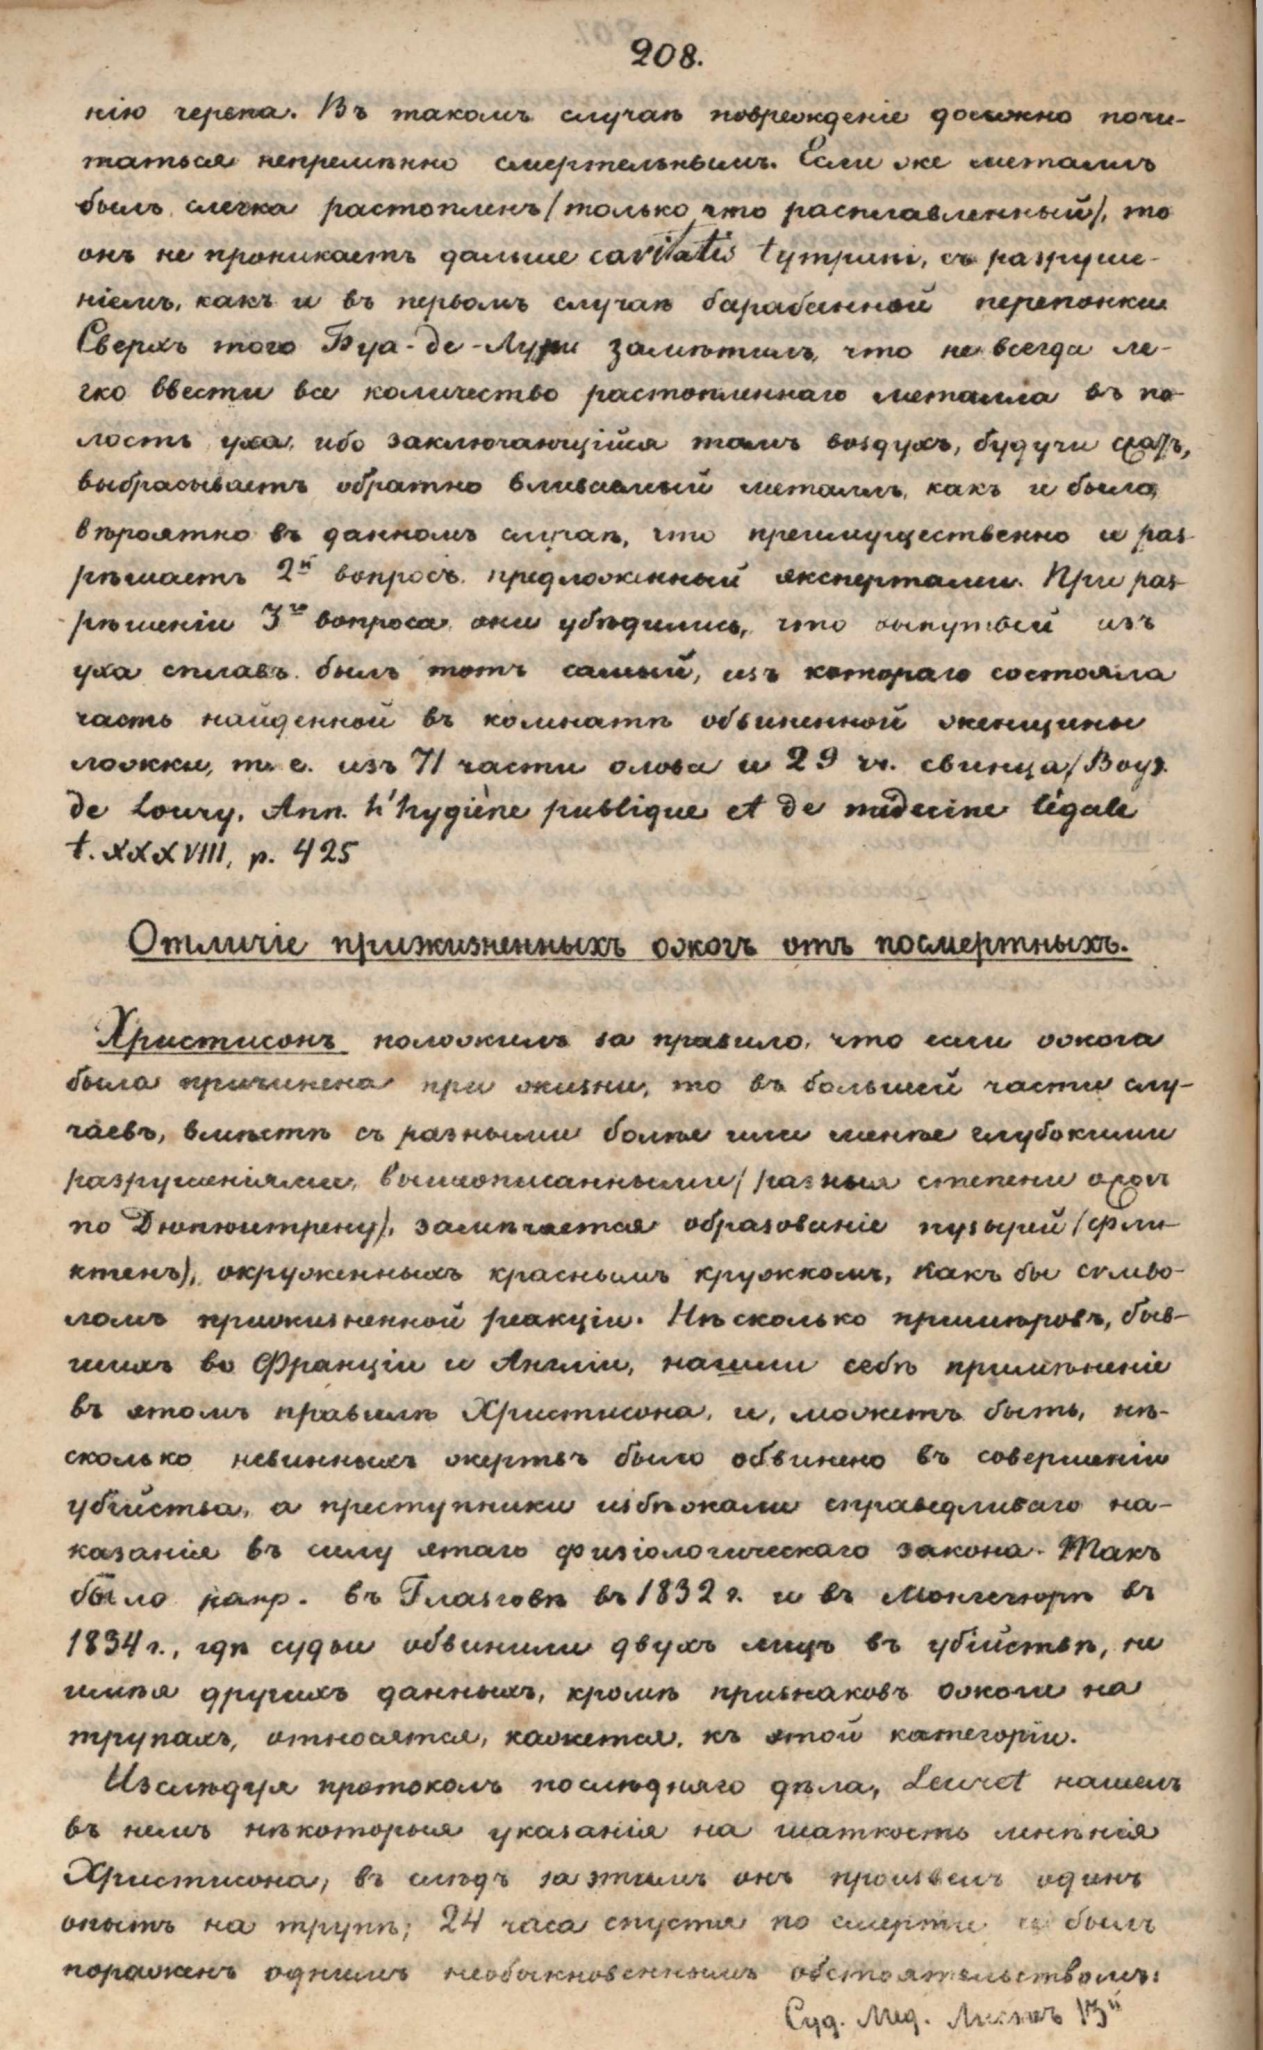 208.
нію черепа. Въ такомъ случаѣ поврежденіе должно почи-
таться непремѣнно смертельнымъ. Если же металлъ
былъ слегка растопленъ /только что расплавленный/, то
онъ не проникаетъ дальше cavitatis tympani, съ разруше-
ніемъ, какъ и въ первомъ случаѣ барабанной перепонки
Сверхъ того Буа-де-Лури замѣтилъ, что не всегда ле-
гко ввести все количество растопленнаго металла въ по-
лость уха, ибо заключающійся тамъ воздухъ, будучи сжатъ,
выбрасываетъ обратно вливаемый металлъ, какъ и было,
вѣроятно въ данномъ случаѣ, что преимущественно и раз-
рѣшаетъ 2й вопросъ, предложенный экспертами. При раз-
рѣшеніи 3го вопроса они убѣдились, что вынутый изъ
уха сплавъ былъ тотъ самый, изъ котораго состояла
часть найденной въ комнатѣ обвиненной женщины
ложки, т. е. изъ 71 части олова и 29 ч. свинца /Boys
de Loury, Ann. d'hygiène publique et de médecine légale
t. XXXVIII, p. 425
Отличіе прижизненныхъ ожогъ отъ посмертныхъ.
Христисонъ положилъ за правило, что если ожога
была причинена при жизни, то въ большей части слу-
чаевъ, вмѣстѣ съ разными болѣе или менѣе глубокими
разрушеніями, вышеописанными /разныя степени ожоги
по Дюпюитрену/, замѣчается образованіе пузырей /фли-
ктенъ/, окруженныхъ краснымъ кружкомъ, какъ бы симво-
ломъ прижизненной реакціи. Нѣсколько примѣровъ, быв-
шихъ во Франціи и Англіи, нашли себѣ примѣненіе
въ этомъ правилѣ Христисона, и, можетъ быть, нѣ-
сколько невинныхъ жертвъ было обвинено въ совершеніи
убійства, а преступники избѣжали справедливаго на-
казанія въ силу этаго физіологическаго закона. Такъ
было напр. въ Глазговѣ въ 1832 г. и въ Монгчюрѣ въ
1834 г., гдѣ судьи обвинили двухъ лицъ въ убійствѣ, не
имѣя другихъ данныхъ, кромѣ признаковъ ожоги на
трупахъ, относятся, кажется, къ этой категоріи.
Изслѣдуя протоколъ послѣдняго дѣла, Leuret нашелъ
въ немъ нѣкоторыя указанія на шаткость мнѣнія
Христисона, въ слѣдъ за этимъ онъ произвелъ одинъ
опытъ на трупѣ; 24 часа спустя по смерти и былъ
пораженъ однимъ необыкновеннымъ обстоятельствомъ:
Суд. Мед. Листъ 13й